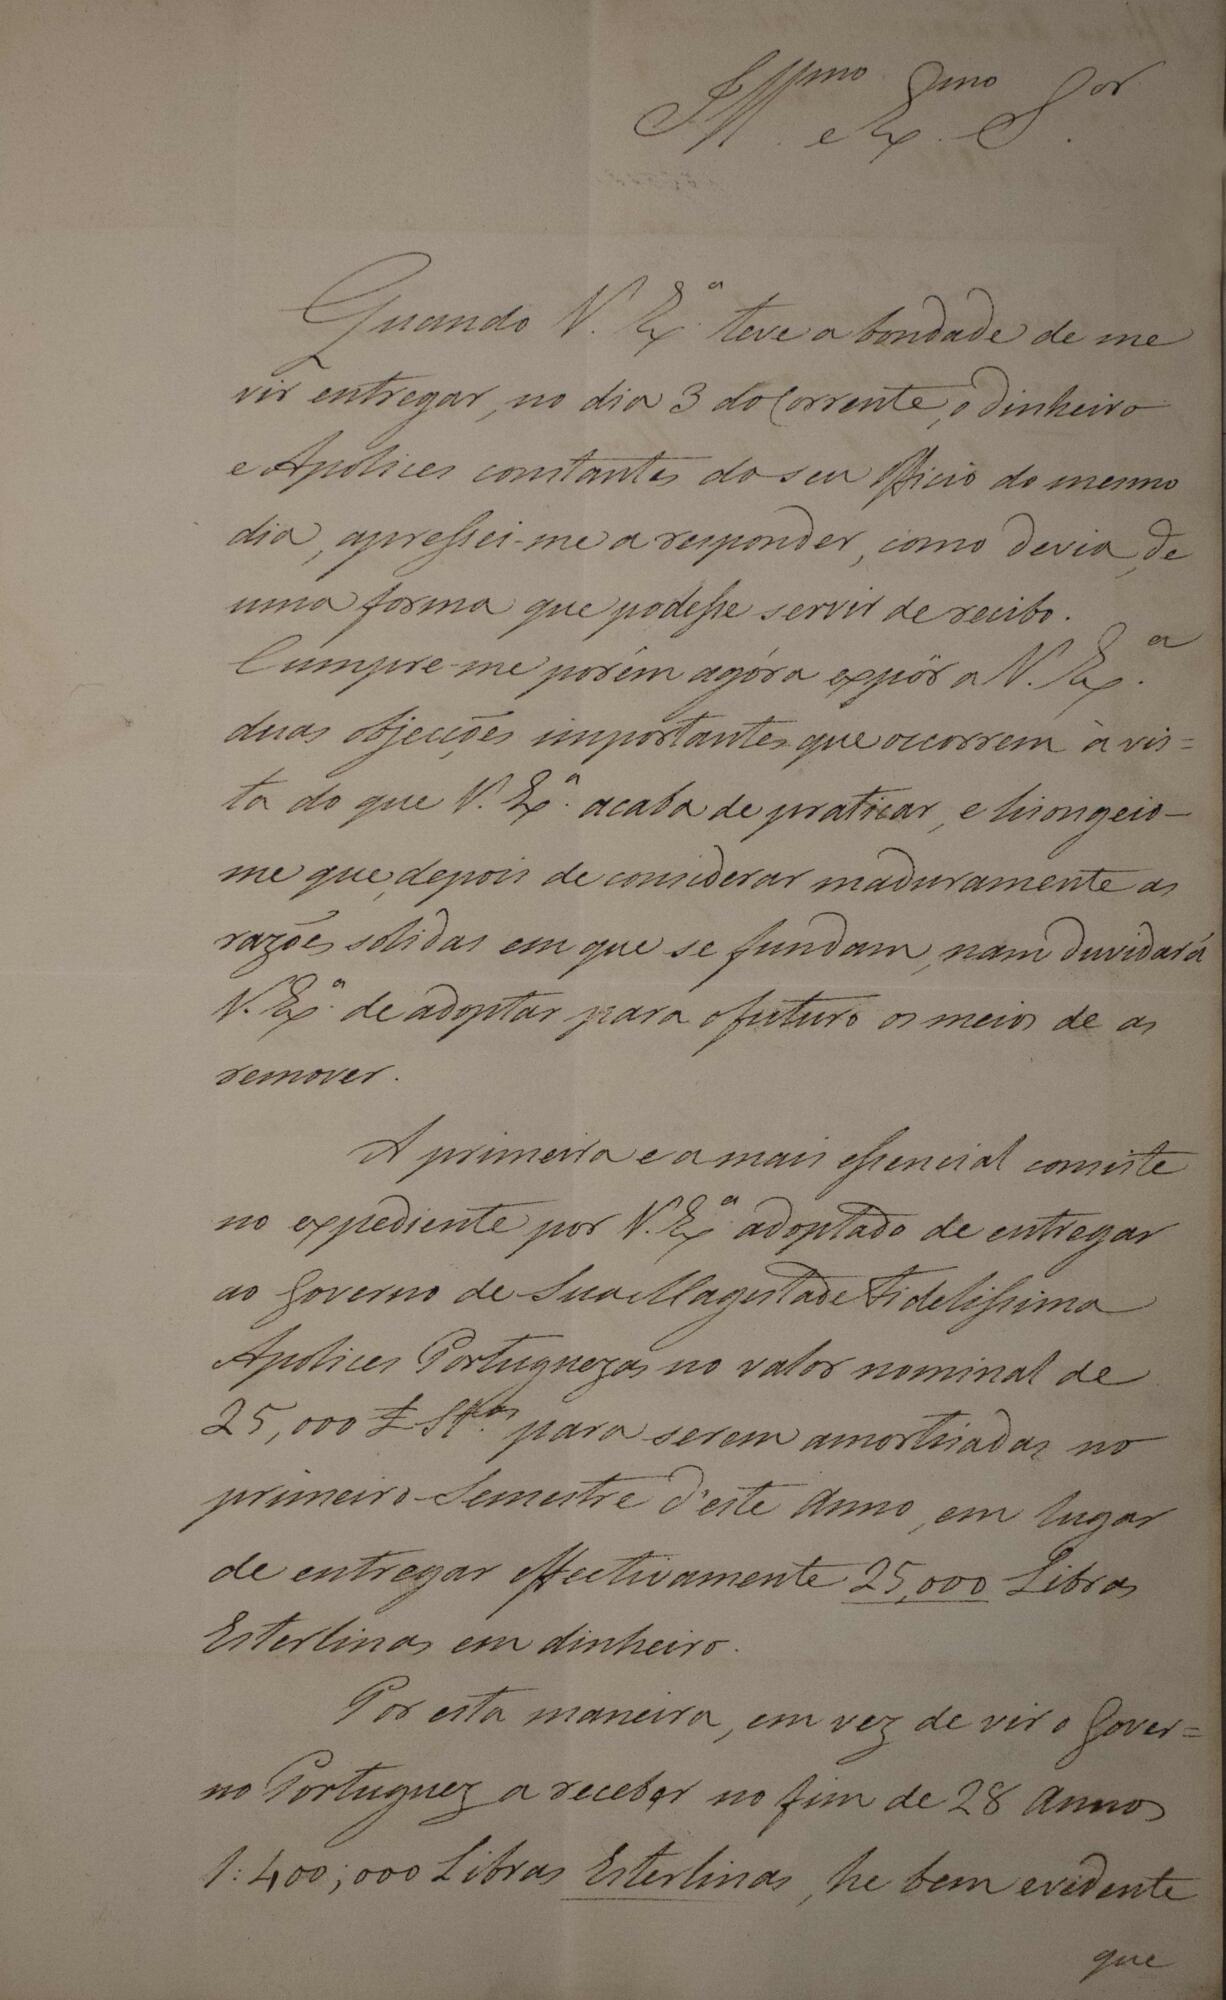 Ill.mo e Ex.mo S.or
Quando V. Ex.a teve a bondade de me
vir entregar, no dia 3 do Corrente, o dinheiro
e Apolices constantes do seu Officio do mesmo
dia, apressei-me a responder, como devia, de
uma forma que podesse servir de recibo.
Cumpre-me porém agóra expôr a V. Ex.a
duas objecções importantes que occorrem à vis=
ta do que V. Ex.a acaba de praticar, e lisongeio-
me que, depois de considerar maduramente as
razões solidas em que se fundam, nam duvidará
V. Ex.a de adoptar para o futuro os meios de as
remover.
A primeira e a mais essencial consiste
no expediente por V. Ex.a adoptado de entregar
ao Governo de Sua Magestade Fidelissima
Apolices Portuguezas no valor nominal de
25,000 £ St.as para serem amortisadas no
primeiro Semestre d'este Anno, em lugar
de entregar effectivamente 25,000 Libras
Esterlinas em dinheiro.
Por esta maneira, em vez de vir o Gover=
no Portuguez a receber no fim de 28 Annos
1:400;000 Libras Esterlinas, he bem evidente
que